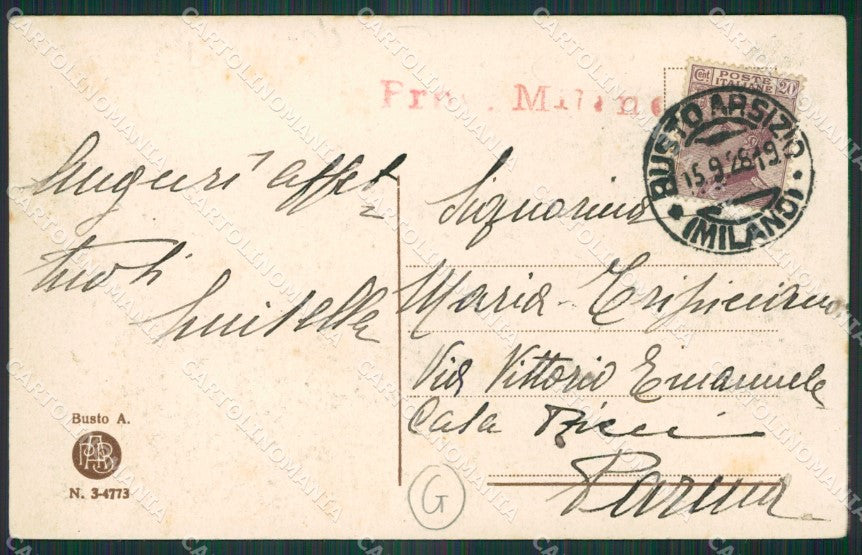 Prov. Milano
Cent. POSTE ITALIANE 20
BUSTO ARSIZIO
15.9.26.19
(MILANO)
Auguri affet=
tuosi
Luisella
Signorina
Maria
Via Vittorio Emanuele
Casa Ricci
Parma
Busto A.
N. 3-4773
G
CARTOLINOMANIA